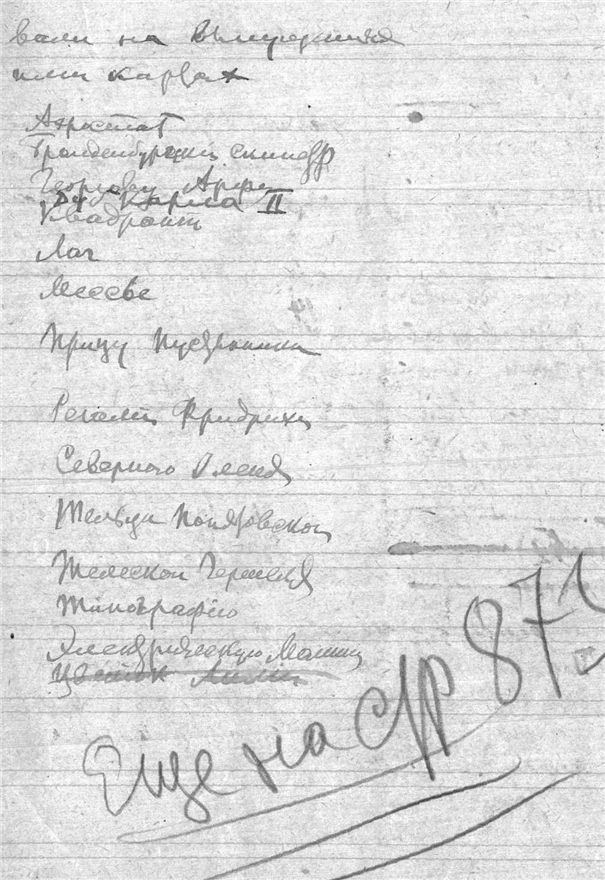 вали на
ими картах
Аэростат
Бранденбургский скипетр
Георгову Арфу
Дуб Карла II
Квадрант
Лаг
Мессье
Птицу Пустынника
Регалии Фридриха
Северного Оленя
Тельца Понятовского
Телескоп Гершеля
Типографию
Электрическую Машину
Цветок Лилии
Еще на стр 871